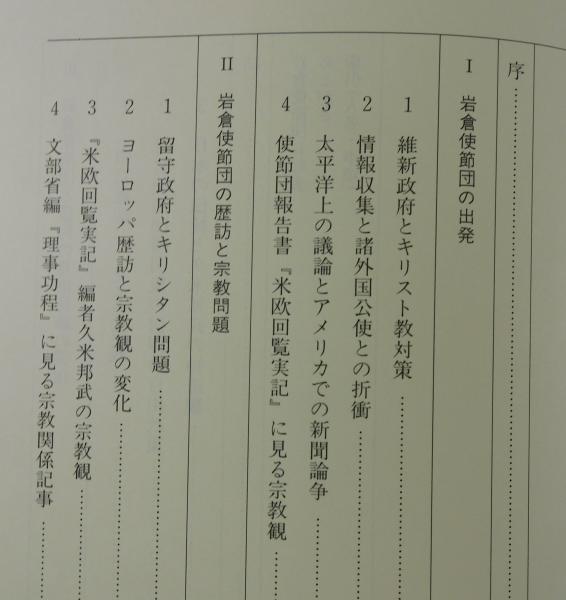 序……………………………
I 岩倉使節団の出発
1 維新政府とキリスト教対策……………
2 情報収集と諸外国公使との折衝…………
3 太平洋上の議論とアメリカでの新聞論争………
4 使節団報告書『米欧回覧実記』に見る宗教観……
II 岩倉使節団の歴訪と宗教問題
1 留守政府とキリシタン問題……………
2 ヨーロッパ歴訪と宗教観の変化…………
3 『米欧回覧実記』編者久米邦武の宗教観………
4 文部省編『理事功程』に見る宗教関係記事……